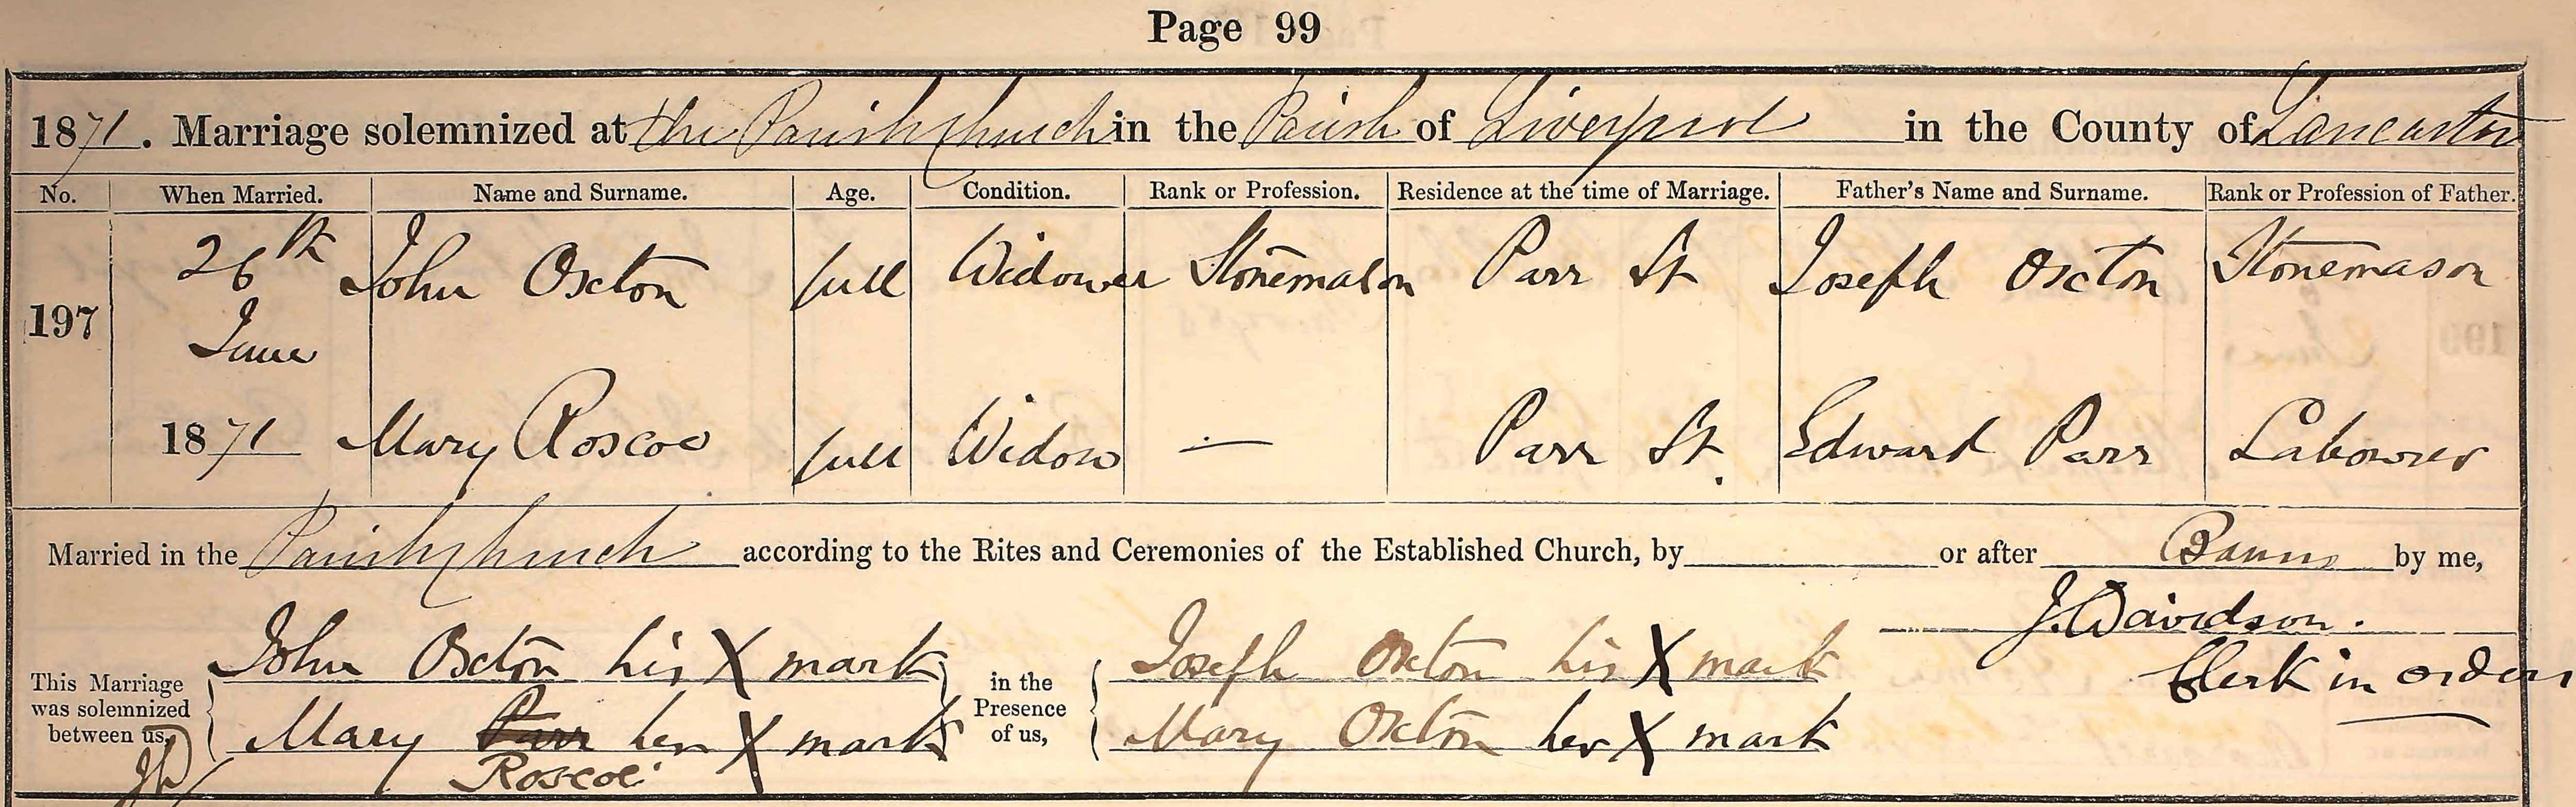 Page 99
1871. Marriage solemnized at the Parish Church in the Parish of Liverpool in the County of Lancaster
No. When Married. Name and Surname. Age. Condition. Rank or Profession. Residence at the time of Marriage. Father's Name and Surname. Rank or Profession of Father.
26th John Oxton full Widower Stonemason Parr St Joseph Oxton Stonemason
197
June
1871 Mary Roscoe full Widow — Parr St. Edward Parr Labourer
Married in the Parish Church according to the Rites and Ceremonies of the Established Church, by or after Banns by me,
J. Davidson.
Clerk in orders
This Marriage was solemnized between us,
John Oxton his X mark
Mary Parr her X mark
Roscoe
JD
in the Presence of us,
Joseph Oxton his X mark
Mary Oxton her X mark